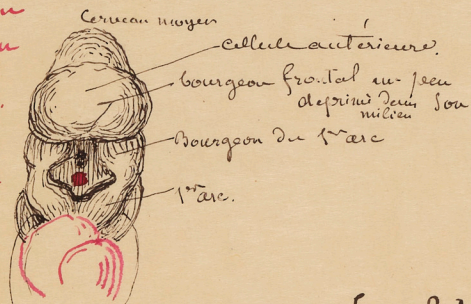 Cerveau moyen
cellule antérieure.
bourgeon frontal un peu
déprimé dans son
milieu
Bourgeon du 1er arc
1er arc.